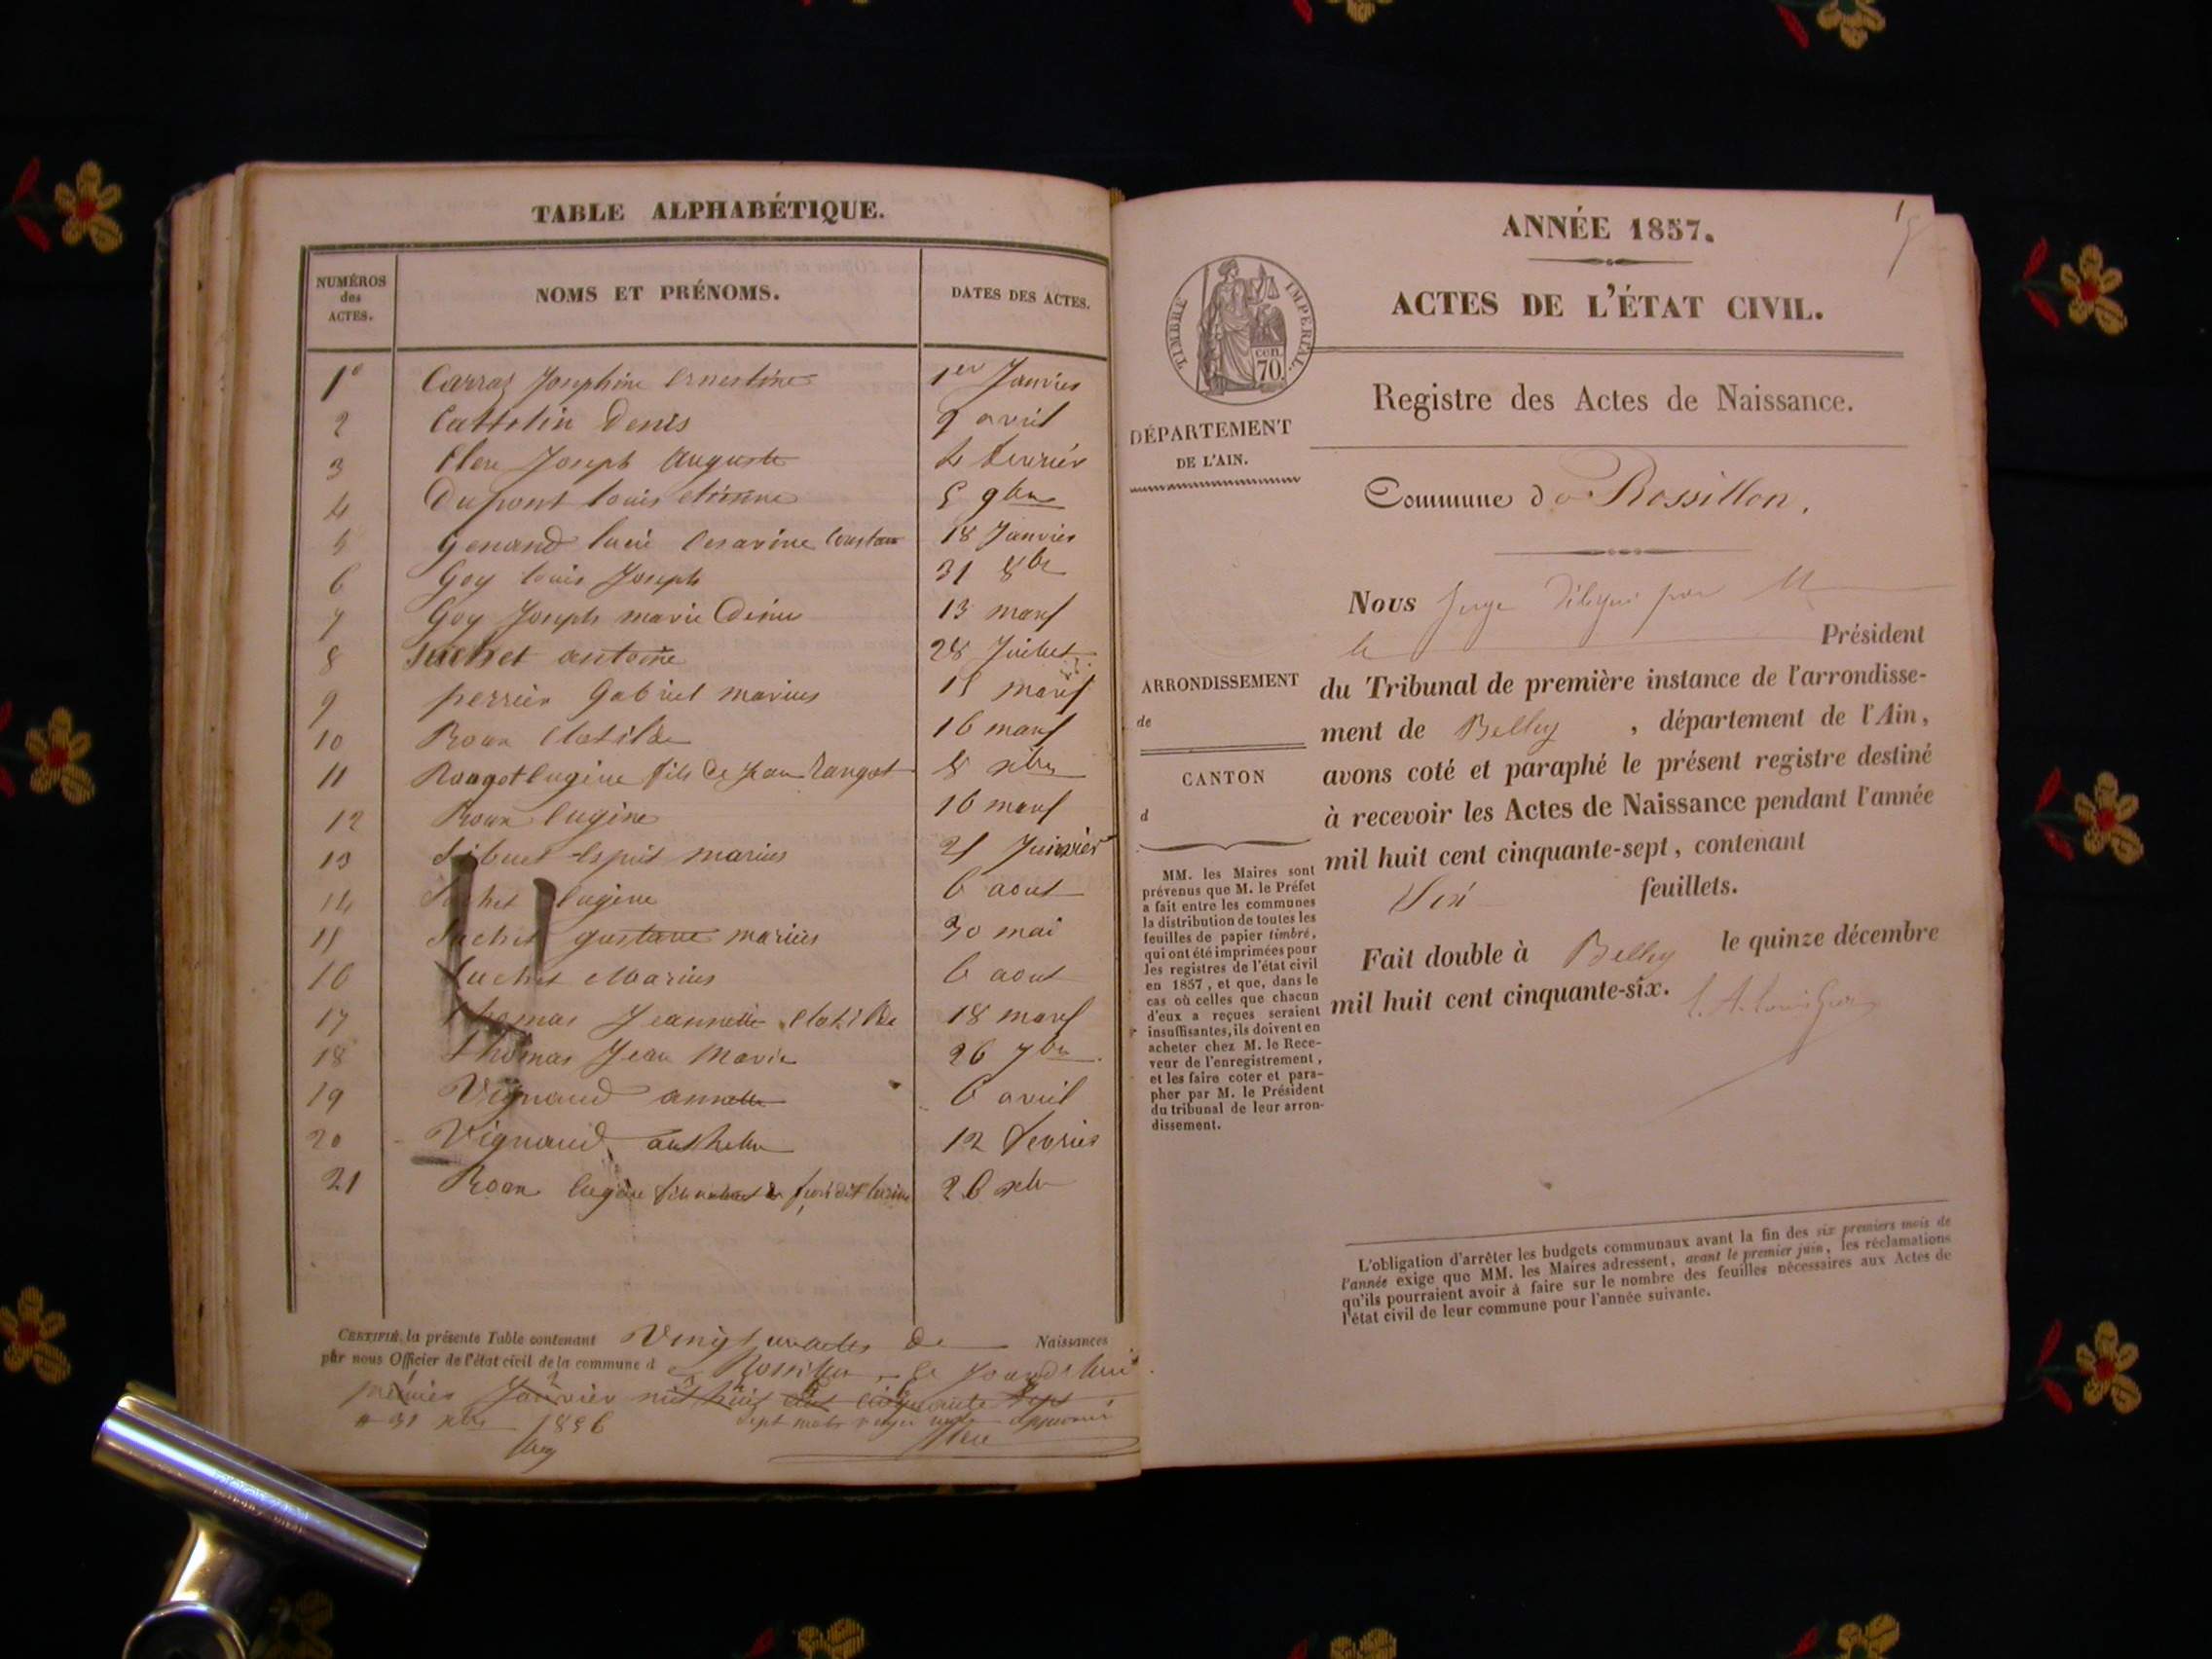 TABLE ALPHABÉTIQUE.
NUMÉROS des ACTES. NOMS ET PRÉNOMS. DATES DES ACTES.
1° Carraz Josephine Ernestine 1er Janvier
2 Cattelin Denis 9 avril
3 Clere Joseph Auguste 4 fevrier
4 Dupont louis etienne 5 9bre
5 genand lucie Cesarine 18 Janvier
6 Goy louis Joseph 31 8bre
7 Goy Joseph marie 13 mars
8 Juchet antoine 28 Juillet
9 perrier Gabriel marius 15 mars
10 Roux Clotilde 16 mars
11 Rougot Eugène fils de Jean Rangot 8 xbre
12 Roux Eugène 16 mars
13 Sibuet Esprit marius 21 Janvier
14 Suchet Eugène 6 aout
15 Suchet gustave marius 30 mai
16 Suchet Marius 6 aout
17 Thomas Jeannette Clotilde 18 mars
18 Thomas Jean Marie 26 7bre
19 Vignaud annette 6 avril
20 Vignaud anthelme 12 fevrier
21 Roux Eugène 26 xbre
CERTIFIÉ, la présente Table contenant Vingt un actes de Naissances
par nous Officier de l'état civil de la commune de Rossillon, le Jourd'hui
premier Janvier mil huit cent cinquante sept
31 xbre 1856 sept mots rayés nuls approuvé
ANNÉE 1857.
1
ACTES DE L'ÉTAT CIVIL.
TIMBRE IMPÉRIAL
cen. 70
Registre des Actes de Naissance.
DÉPARTEMENT
DE L'AIN.
Commune de Rossillon,
Nous Juge délégué par M
le Président
ARRONDISSEMENT
de
du Tribunal de première instance de l'arrondisse-
ment de Belley, département de l'Ain,
CANTON
d
avons coté et paraphé le présent registre destiné
à recevoir les Actes de Naissance pendant l'année
mil huit cent cinquante-sept, contenant
Six feuillets.
Fait double à Belley le quinze décembre
mil huit cent cinquante-six.
MM. les Maires sont
prévenus que M. le Préfet
a fait entre les communes
la distribution de toutes les
feuilles de papier timbré,
qui ont été imprimées pour
les registres de l'état civil
en 1857, et que, dans le
cas où celles que chacun
d'eux a reçues seraient
insuffisantes, ils doivent en
acheter chez M. le Rece-
veur de l'enregistrement,
et les faire coter et para-
pher par M. le Président
du tribunal de leur arron-
dissement.
L'obligation d'arrêter les budgets communaux avant la fin des six premiers mois de
l'année exige que MM. les Maires adressent, avant le premier juin, les réclamations
qu'ils pourraient avoir à faire sur le nombre des feuilles nécessaires aux Actes de
l'état civil de leur commune pour l'année suivante.